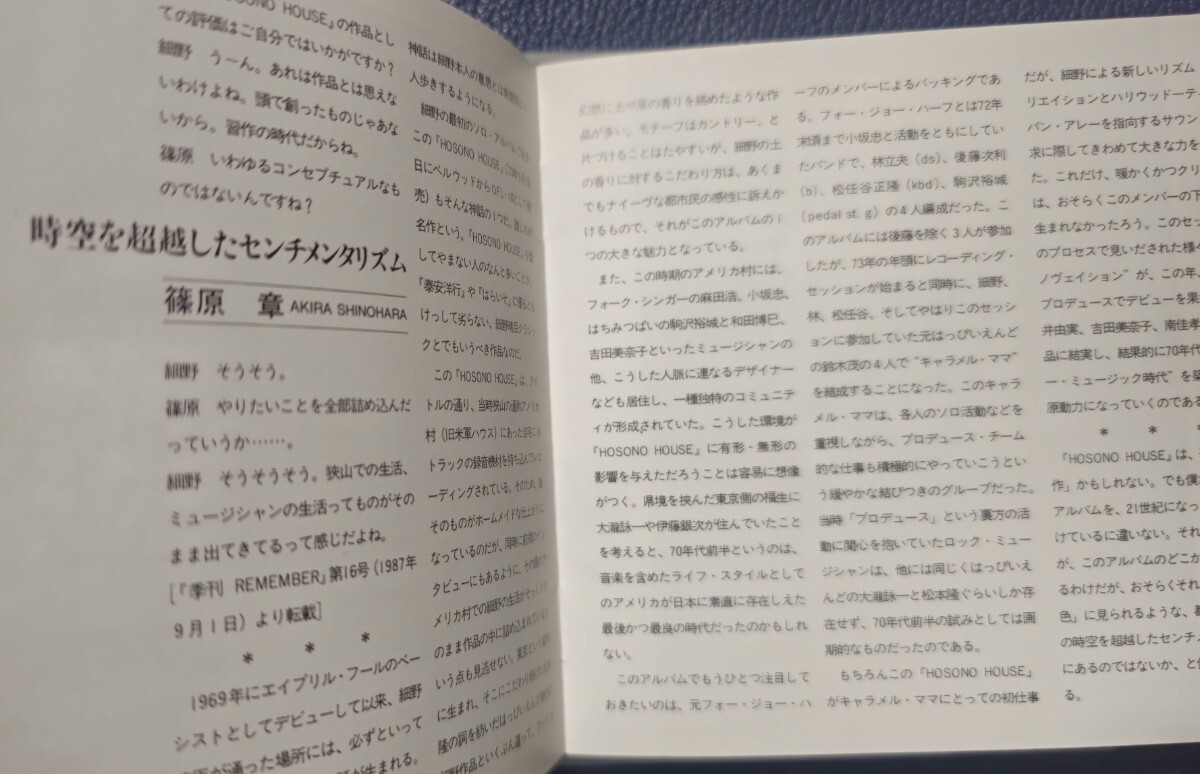 OSONO HOUSE』の作品とし
ての評価はご自分ではいかがですか?
細野 う一ん。あれは作品とは思えな
いわけよね。頭で創ったものじゃあな
いから。習作の時代だからね。
篠原 いわゆるコンセプチュアルなも
のではないんですね?
時空を超越したセンチメンタリズム
篠原 章 AKIRA SHINOHARA
細野 そうそう。
篠原 やりたいことを全部詰め込んだ
っていうか……。
細野 そうそうそう。狭山での生活、
ミュージシャンの生活ってものがその
まま出てきてるって感じだよね。
[『季刊 REMEMBER』第16号(1987年
9月1日)より転載]
* * *
1969年にエイプリル・フールのベー
シストとしてデビューして以来、細野
が通った場所には、必ずといって
が生まれる。
神話は細野本人の意思とは
人歩きするようになる。
細野の最初のソロ・アルバム
この『HOSONO HOUSE』
日にベルウッドから
売)もそんな神話の1つだ。
名作という。『HOSONO HOUSE』を
してやまない人のなんと多いことか。
『泰安洋行』や『はらいそ』に
けっして劣らない、
クとでもいうべき作品なのだ。
この『HOSONO HOUSE』は、タイ
トルの通り、当時狭山の
村(旧米軍ハウス)にあった
トラックの録音機材を持ち込んでレコ
ーディングされている。そのため、
そのものがホームメイドな仕上がりに
なっているのだが、同時に前掲のイン
タビューにもあるように、
メリカ村での細野の生活が
のまま作品の中に詰め込まれていると
いう点も見逃せない。
に生まれ、そこにこだわり
隆の詞を紡いだはっぴいえんど
野作品といくぶん違って、
幻想に土や草の香りを絡めたような作
品が多い。モチーフはカントリー、と
片づけることはたやすいが、細野の土
の香りに対するこだわり方は、あくま
でもナイーヴな都市民の感性に訴えか
けるもので、それがこのアルバムの1
つの大きな魅力となっている。
また、この時期のアメリカ村には、
フォーク・シンガーの麻田浩、小坂忠、
はちみつぱいの駒沢裕城と和田博巳、
吉田美奈子といったミュージシャンの
他、こうした人脈に連なるデザイナー
なども居住し、一種独特のコミュニテ
ィが形成されていた。こうした環境が
『HOSONO HOUSE』に有形・無形の
影響を与えただろうことは容易に想像
がつく。県境を挟んだ東京側の福生に
大瀧詠一や伊藤銀次が住んでいたこと
を考えると、70年代前半というのは、
音楽を含めたライフ・スタイルとして
のアメリカが日本に素直に存在しえた
最後かつ最良の時代だったのかもしれ
ない。
このアルバムでもうひとつ注目して
おきたいのは、元フォー・ジョー・ハ
ーフのメンバーによるバッキングであ
る。フォー・ジョー・ハーフとは72年
末頃まで小坂忠と活動をともにしてい
たバンドで、林立夫(ds)、後藤次利
(b)、松任谷正隆(kbd)、駒沢裕城
(pedal st. g)の4人編成だった。こ
のアルバムには後藤を除く3人が参加
したが、73年の年頭にレコーディング・
セッションが始まると同時に、細野、
林、松任谷、そしてやはりこのセッシ
ョンに参加していた元はっぴいえんど
の鈴木茂の4人で“キャラメル・ママ”
を結成することになった。このキャラ
メル・ママは、各人のソロ活動などを
重視しながら、プロデュース・チーム
的な仕事も積極的にやっていこうとい
う緩やかな結びつきのグループだった。
当時「プロデュース」という裏方の活
動に関心を抱いていたロック・ミュー
ジシャンは、他には同じくはっぴいえ
んどの大瀧詠一と松本隆ぐらいしか存
在せず、70年代前半の試みとしては画
期的なものだったのである。
もちろんこの『HOSONO HOUSE』
がキャラメル・ママにとっての初仕事
だが、細野による新しいリズム
リエイションとハリウッドーティ
パン・アレーを指向するサウン
求に際してきわめて大きな力を
た。これだけ、暖かくかつクリ
は、おそらくこのメンバーの下
生まれなかったろう。このセッ
のプロセスで見いだされた様々
ノヴェイション”が、この年、
プロデュースでデビューを果
井由実、吉田美奈子、南佳孝
品に結実し、結果的に70年代
ー・ミュージック時代”を築
原動力になっていくのである
* * *
『HOSONO HOUSE』は、
作」かもしれない。でも僕
アルバムを、21世紀になっ
けているに違いない。それ
が、このアルバムのどこか
るわけだが、おそらくそれ
色」に見られるような、
の時空を超越したセンチメ
にあるのではないか、と
る。